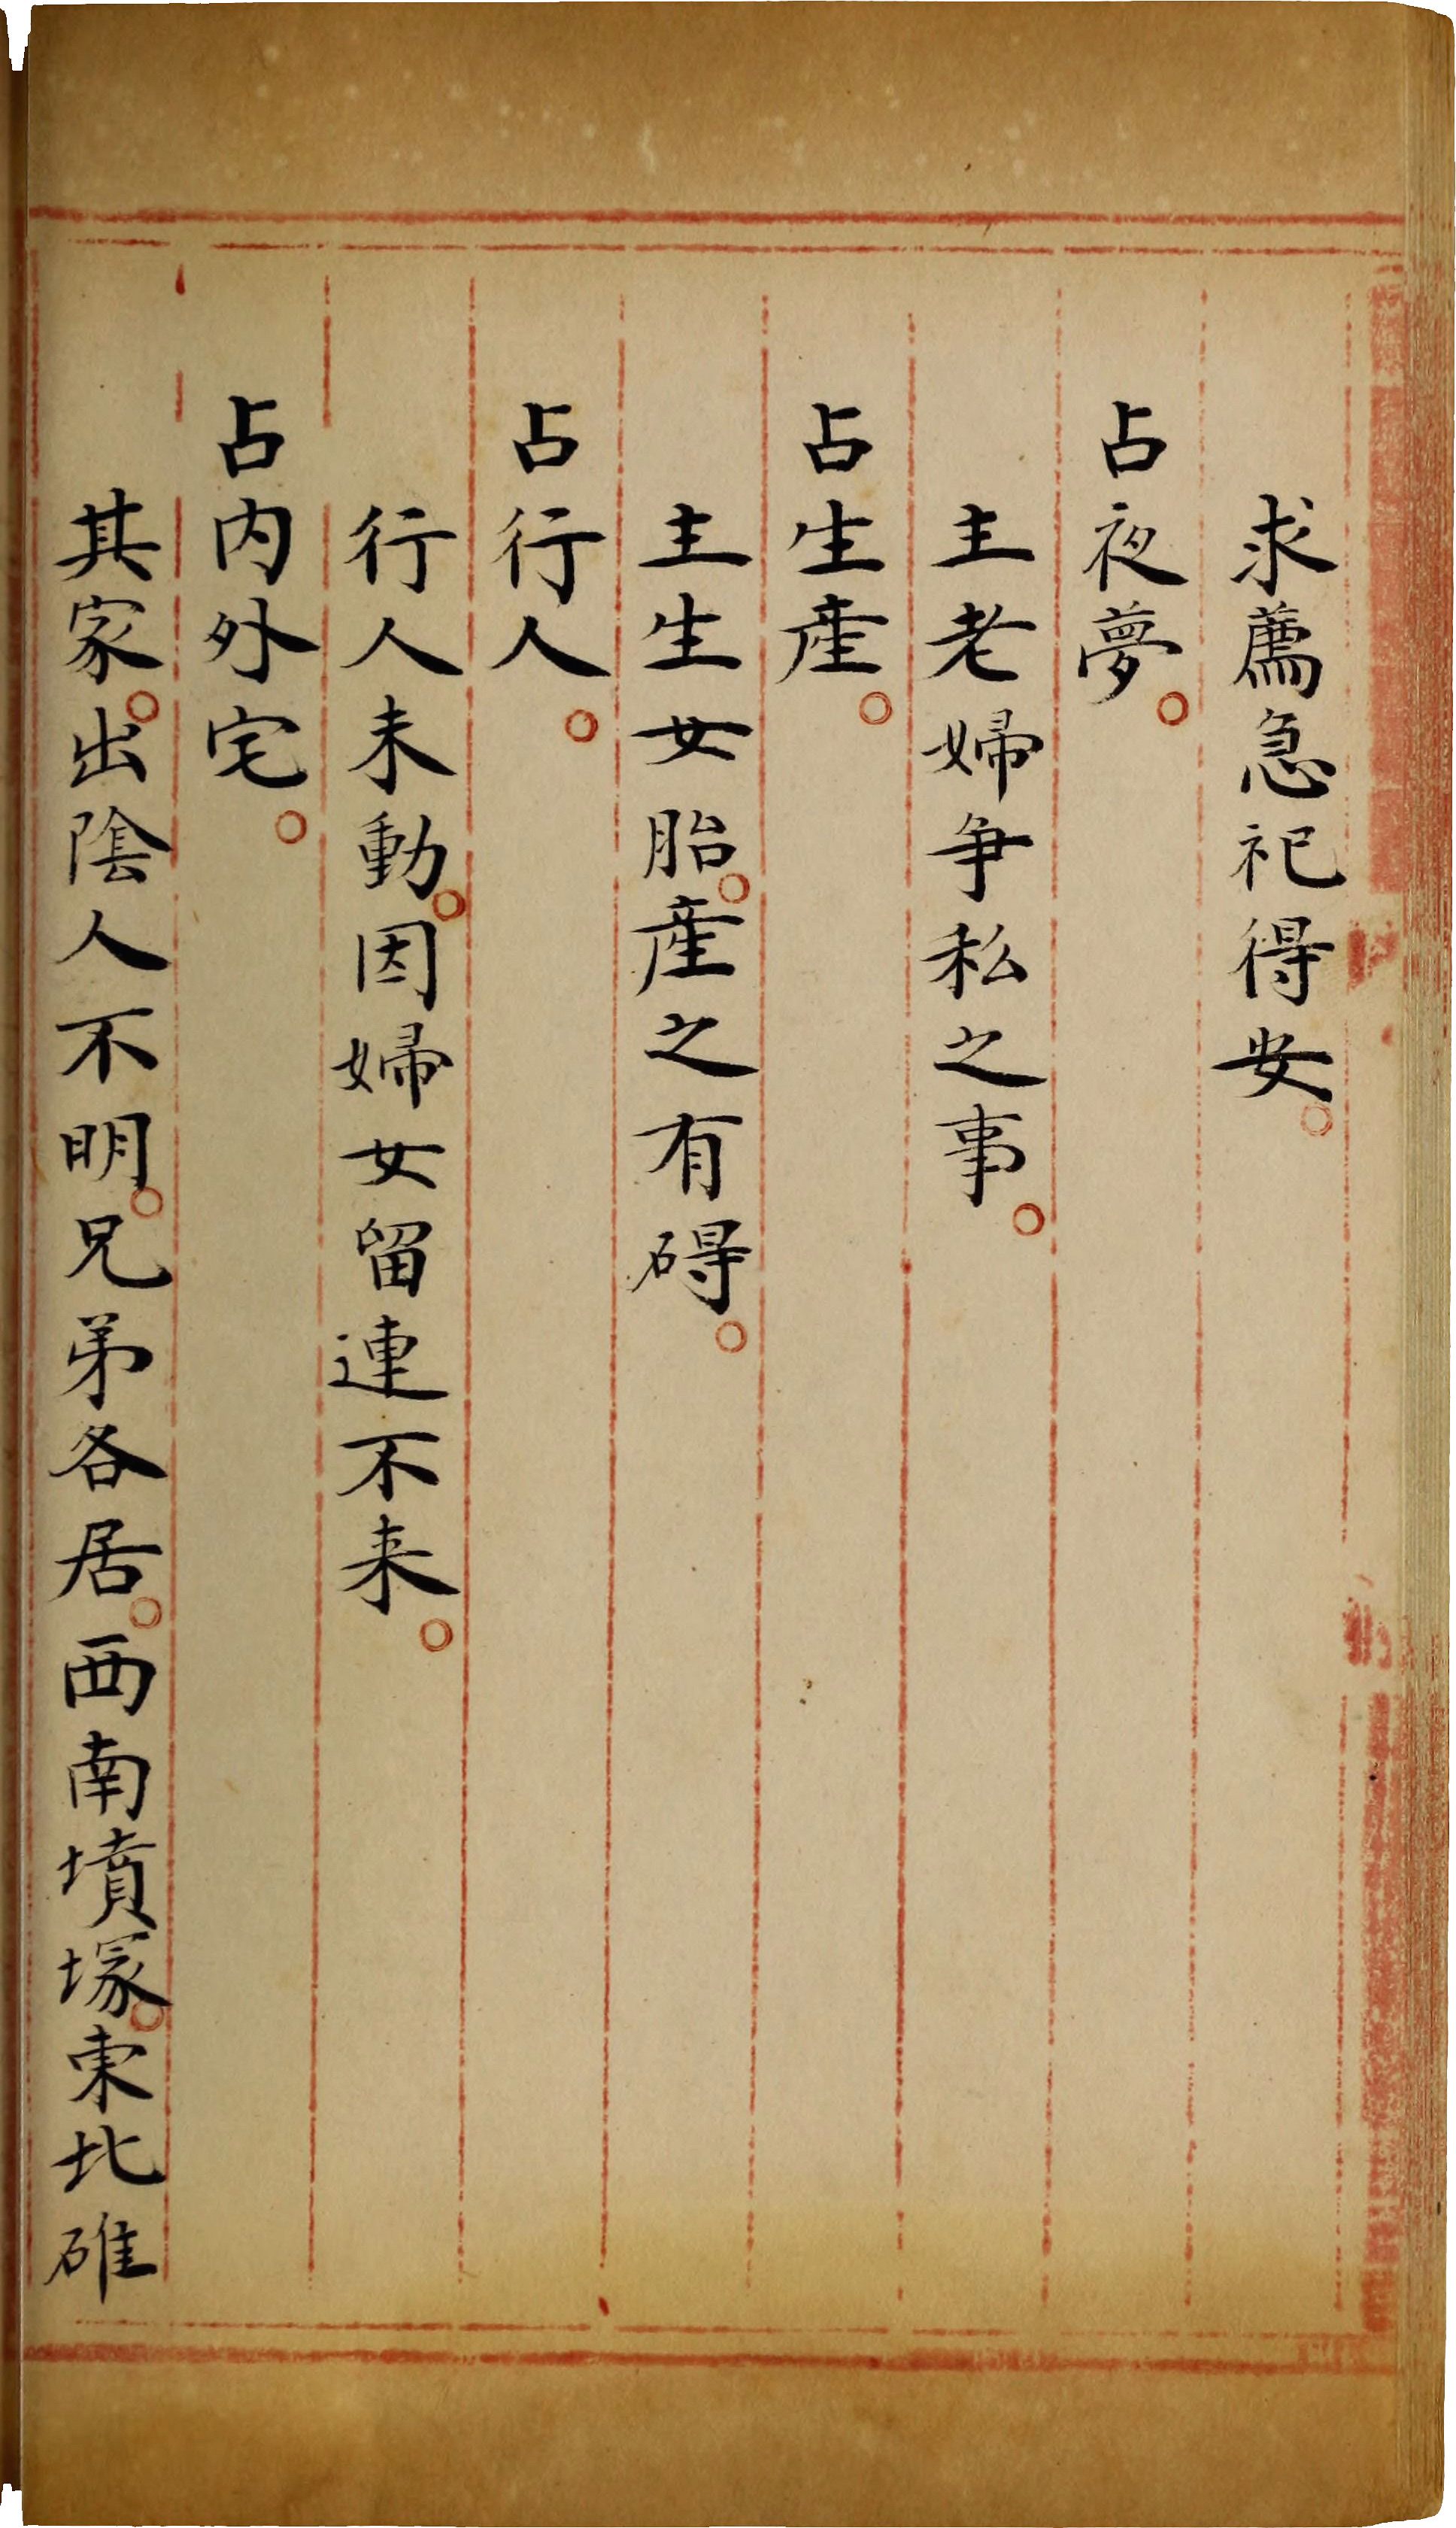 求薦急祀得安。
占夜夢。
主老婦争私之事。
占生產。
主生女胎。產之有碍。
占行人。
行人未動。因婦女留連不来。
占内外宅。
其家。出陰人不明。兄弟各居。西南墳塚。東北碓